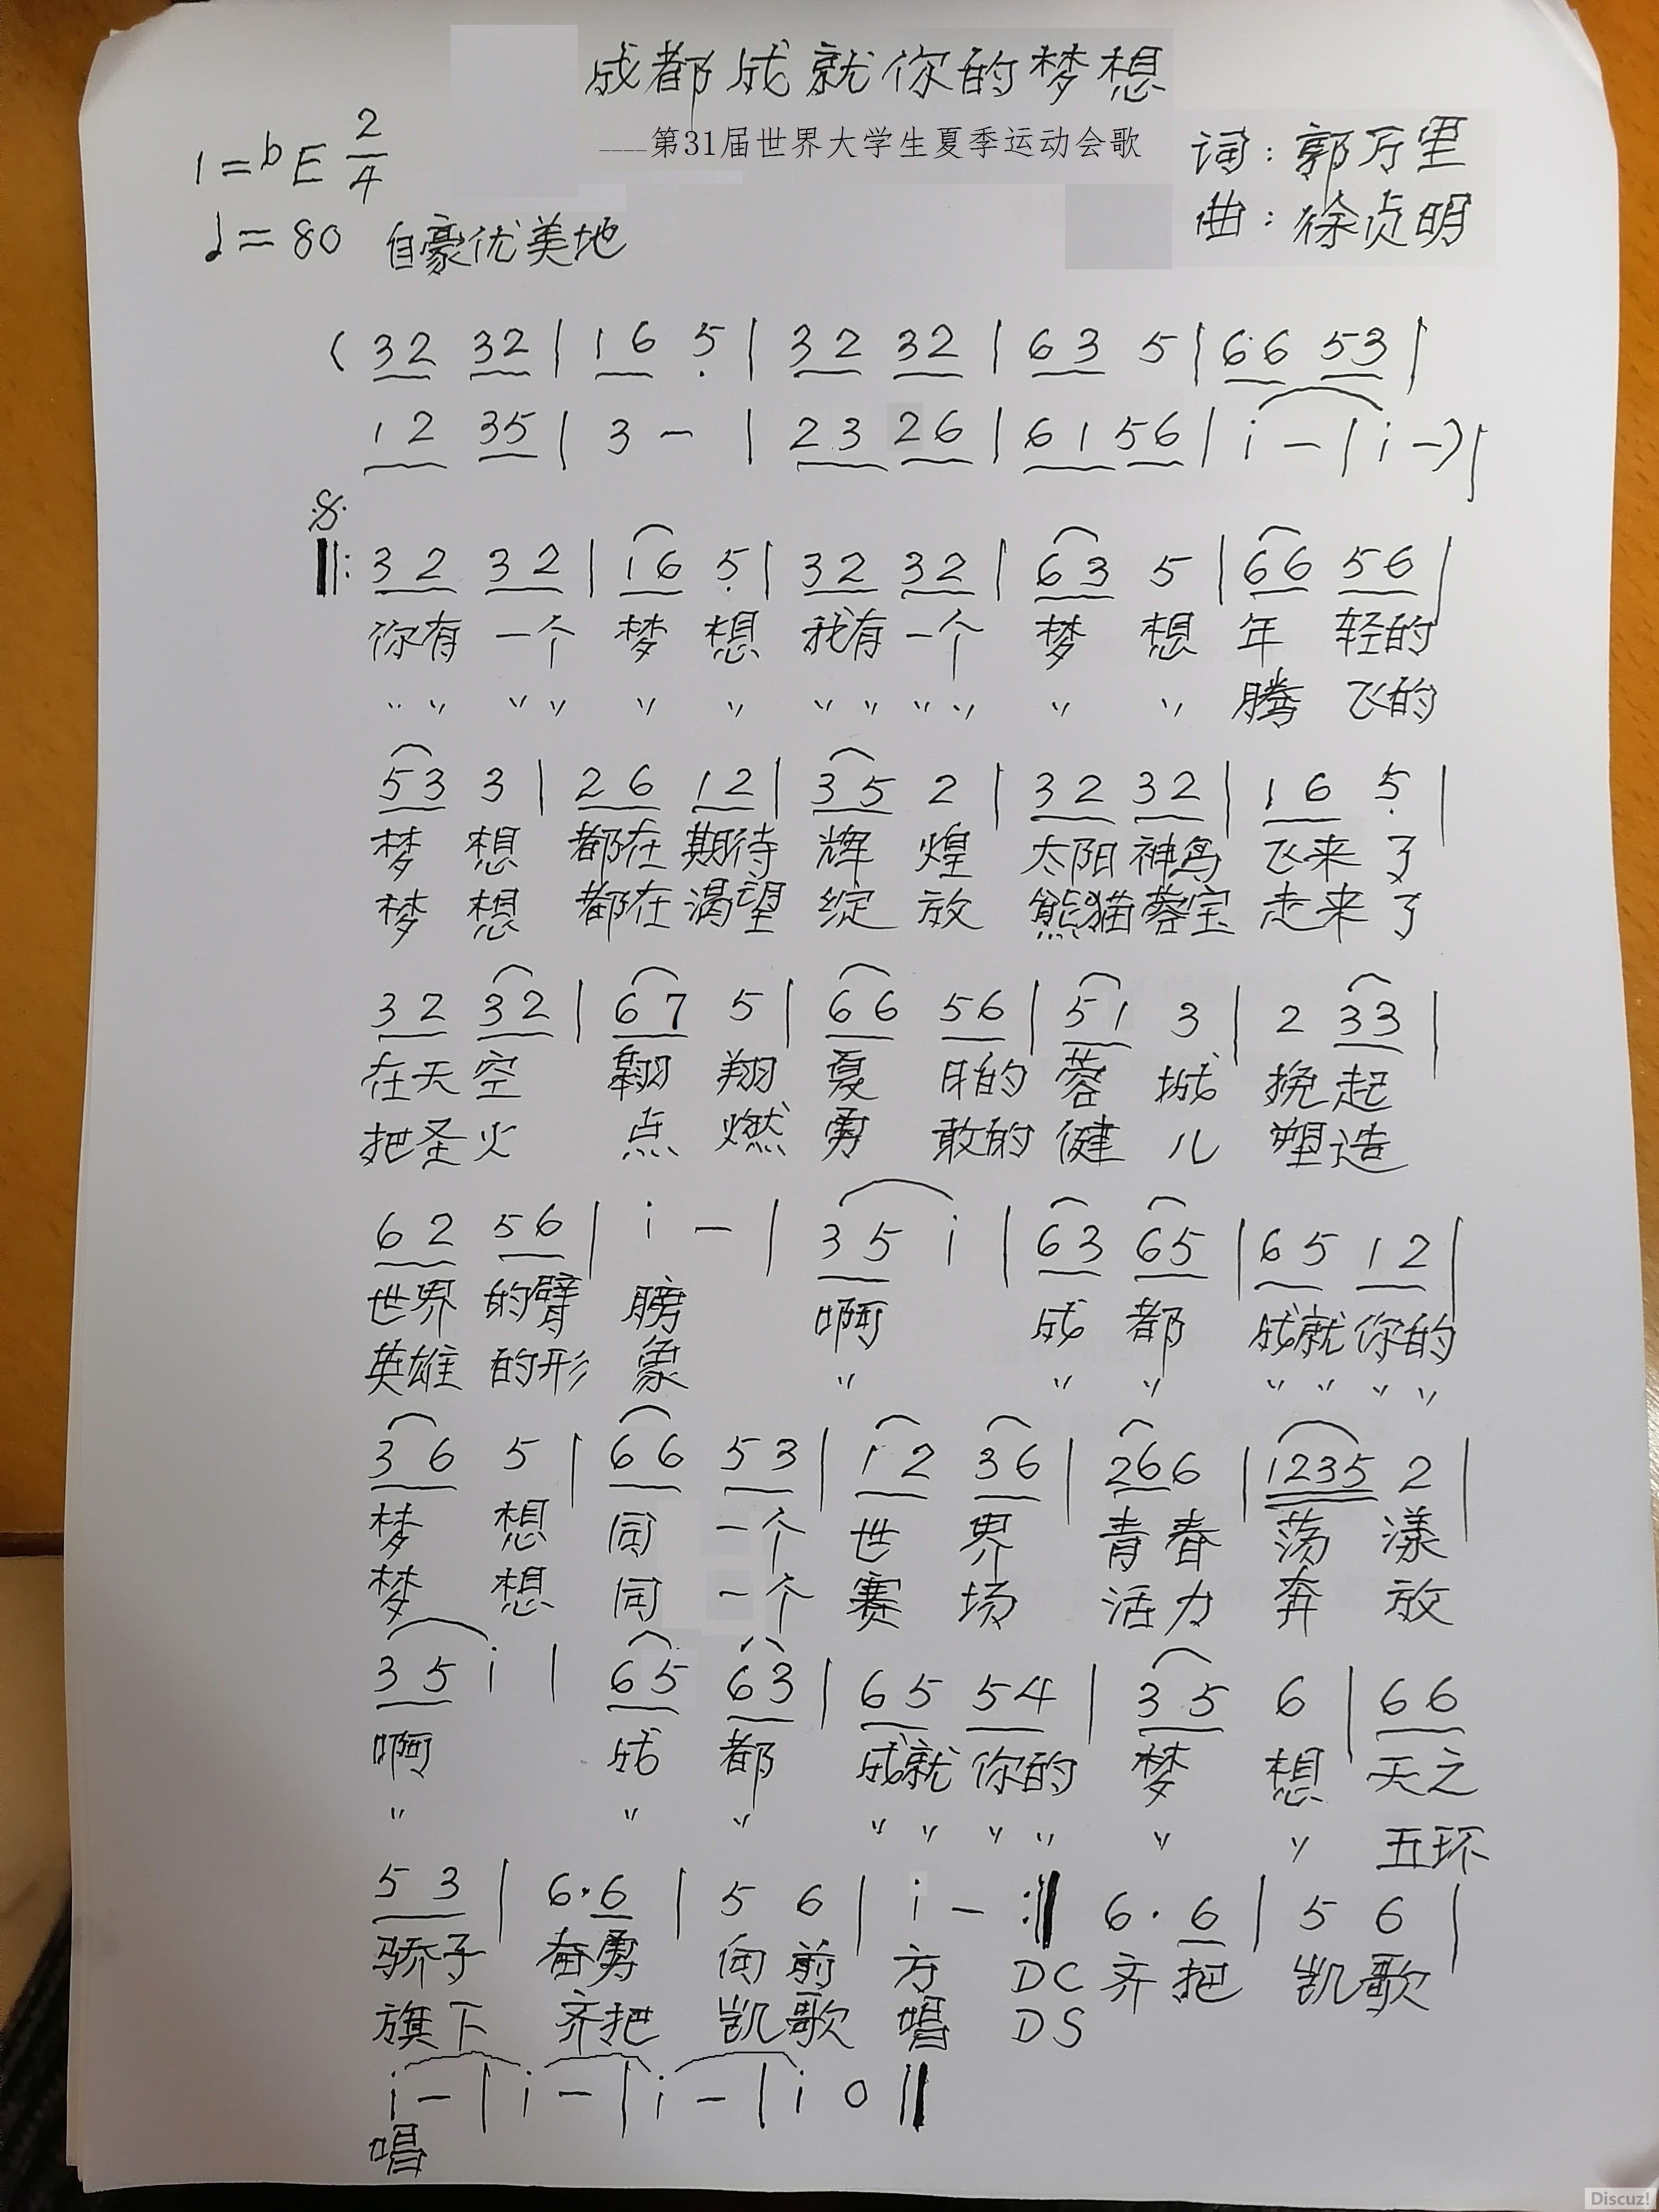 成都成就你的梦想
----第31届世界大学生夏季运动会歌
1=bE 2/4
词:郭万里
♩=80 自豪优美地
曲:徐贞明
(32 32|16 5̣|32 32|63 5|66 53|
12 35|3 -|23 26|61 56|i -|i -)|
𝄋
‖:32 32|16 5̣|32 32|63 5|66 56|
你有 一个 梦 想 我有 一个 梦 想 年 轻的
〃〃 〃〃 〃 〃 〃〃 〃〃 〃 〃 腾 飞的
53 3|26 12|35 2|32 32|16 5̣|
梦 想 都在 期待 辉 煌 太阳 神鸟 飞来 了
梦 想 都在 渴望 绽 放 熊猫 蓉宝 走来 了
32 32|67 5|66 56|51 3|2 33|
在天 空 翱 翔 夏 日的 蓉 城 挽 起
把圣 火 点 燃 勇 敢的 健 儿 塑 造
62 56|i -|35 i|63 65|65 12|
世界 的臂 膀 啊 成 都 成就 你的
英雄 的形 象 〃 〃 〃 〃〃 〃〃
36 5|66 53|12 36|26 6|1235 2|
梦 想 同 一个 世 界 青 春 荡 漾
梦 想 同 一个 赛 场 活 力 奔 放
35 i|65 63|65 54|35 6|66
啊 成 都 成就 你的 梦 想 天之
〃 〃 〃 〃〃 〃〃 〃 〃 五环
53|6·6|5 6|i - :‖ 6·6|5 6|
骄子 奋勇 向 前 方 DC 齐 把 凯 歌
旗下 齐把 凯 歌 唱 DS
i -|i -|i -|i 0‖
唱
Discuz!